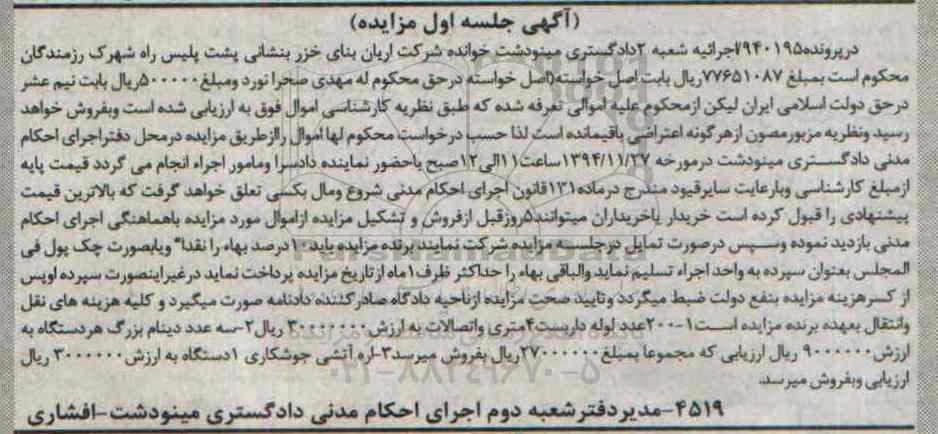 (آگهی جلسه اول مزایده)
درپرونده۷۹۴۰۱۹۵اجرائیه شعبه ۲دادگستری مینودشت خوانده شرکت اریان بنای خزر بنشانی پشت پلیس راه شهرک رزمندگان
محکوم است بمبلغ ۷۷۶۵۱۰۸۷ریال بابت اصل خواسته(اصل خواسته درحق محکوم له مهدی صحرا نورد ومبلغ۵۰۰۰۰۰ریال بابت نیم عشر
درحق دولت اسلامی ایران لیکن ازمحکوم علیه اموالی تعرفه شده که طبق نظریه کارشناسی اموال فوق به ارزیابی شده است وبفروش خواهد
رسید ونظریه مزبورمصون ازهرگونه اعتراضی باقیمانده است لذا حسب درخواست محکوم لها اموال راازطریق مزایده درمحل دفتراجرای احکام
مدنی دادگستری مینودشت درمورخه ۱۳۹۴/۱۱/۲۷ساعت۱۱الی۱۲صبح باحضور نماینده دادسرا ومامور اجراء انجام می گردد قیمت پایه
ازمبلغ کارشناسی وبارعایت سایرقیود مندرج درماده۱۳۱قانون اجرای احکام مدنی شروع ومال بکسی تعلق خواهد گرفت که بالاترین قیمت
پیشنهادی را قبول کرده است خریدار یاخریداران میتوانند۵روزقبل ازفروش و تشکیل مزایده ازاموال مورد مزایده باهماهنگی اجرای احکام
مدنی بازدید نموده وسپس درصورت تمایل درجلسه مزایده شرکت نمایند.برنده مزایده باید۱۰درصد بهاء را نقدا" ویابصورت چک پول فی
المجلس بعنوان سپرده به واحد اجراء تسلیم نماید والباقی بهاء را حداکثر ظرف۱ماه ازتاریخ مزایده پرداخت نماید درغیراینصورت سپرده اوپس
از کسرهزینه مزایده بنفع دولت ضبط میگردد وتایید صحت مزایده ازناحیه دادگاه صادرکننده دادنامه صورت میگیرد و کلیه هزینه های نقل
وانتقال بعهده برنده مزایده است۱-۲۰۰عدد لوله داربست۴متری واتصالات به ارزش۳۰۰۰۰۰۰۰ ریال۲-سه عدد دینام بزرگ هردستگاه به
ارزش۹۰۰۰۰۰۰ ریال ارزیابی که مجموعا بمبلغ۲۷۰۰۰۰۰۰ریال بفروش میرسد۳-اره آتشی جوشکاری ۱دستگاه به ارزش۳۰۰۰۰۰۰ ریال
ارزیابی وبفروش میرسد.
۴۵۱۹-مدیردفترشعبه دوم اجرای احکام مدنی دادگستری مینودشت-افشاری
ParsNamadData
۰۲۱-۸۸۳۴۹۶۷۰-۵